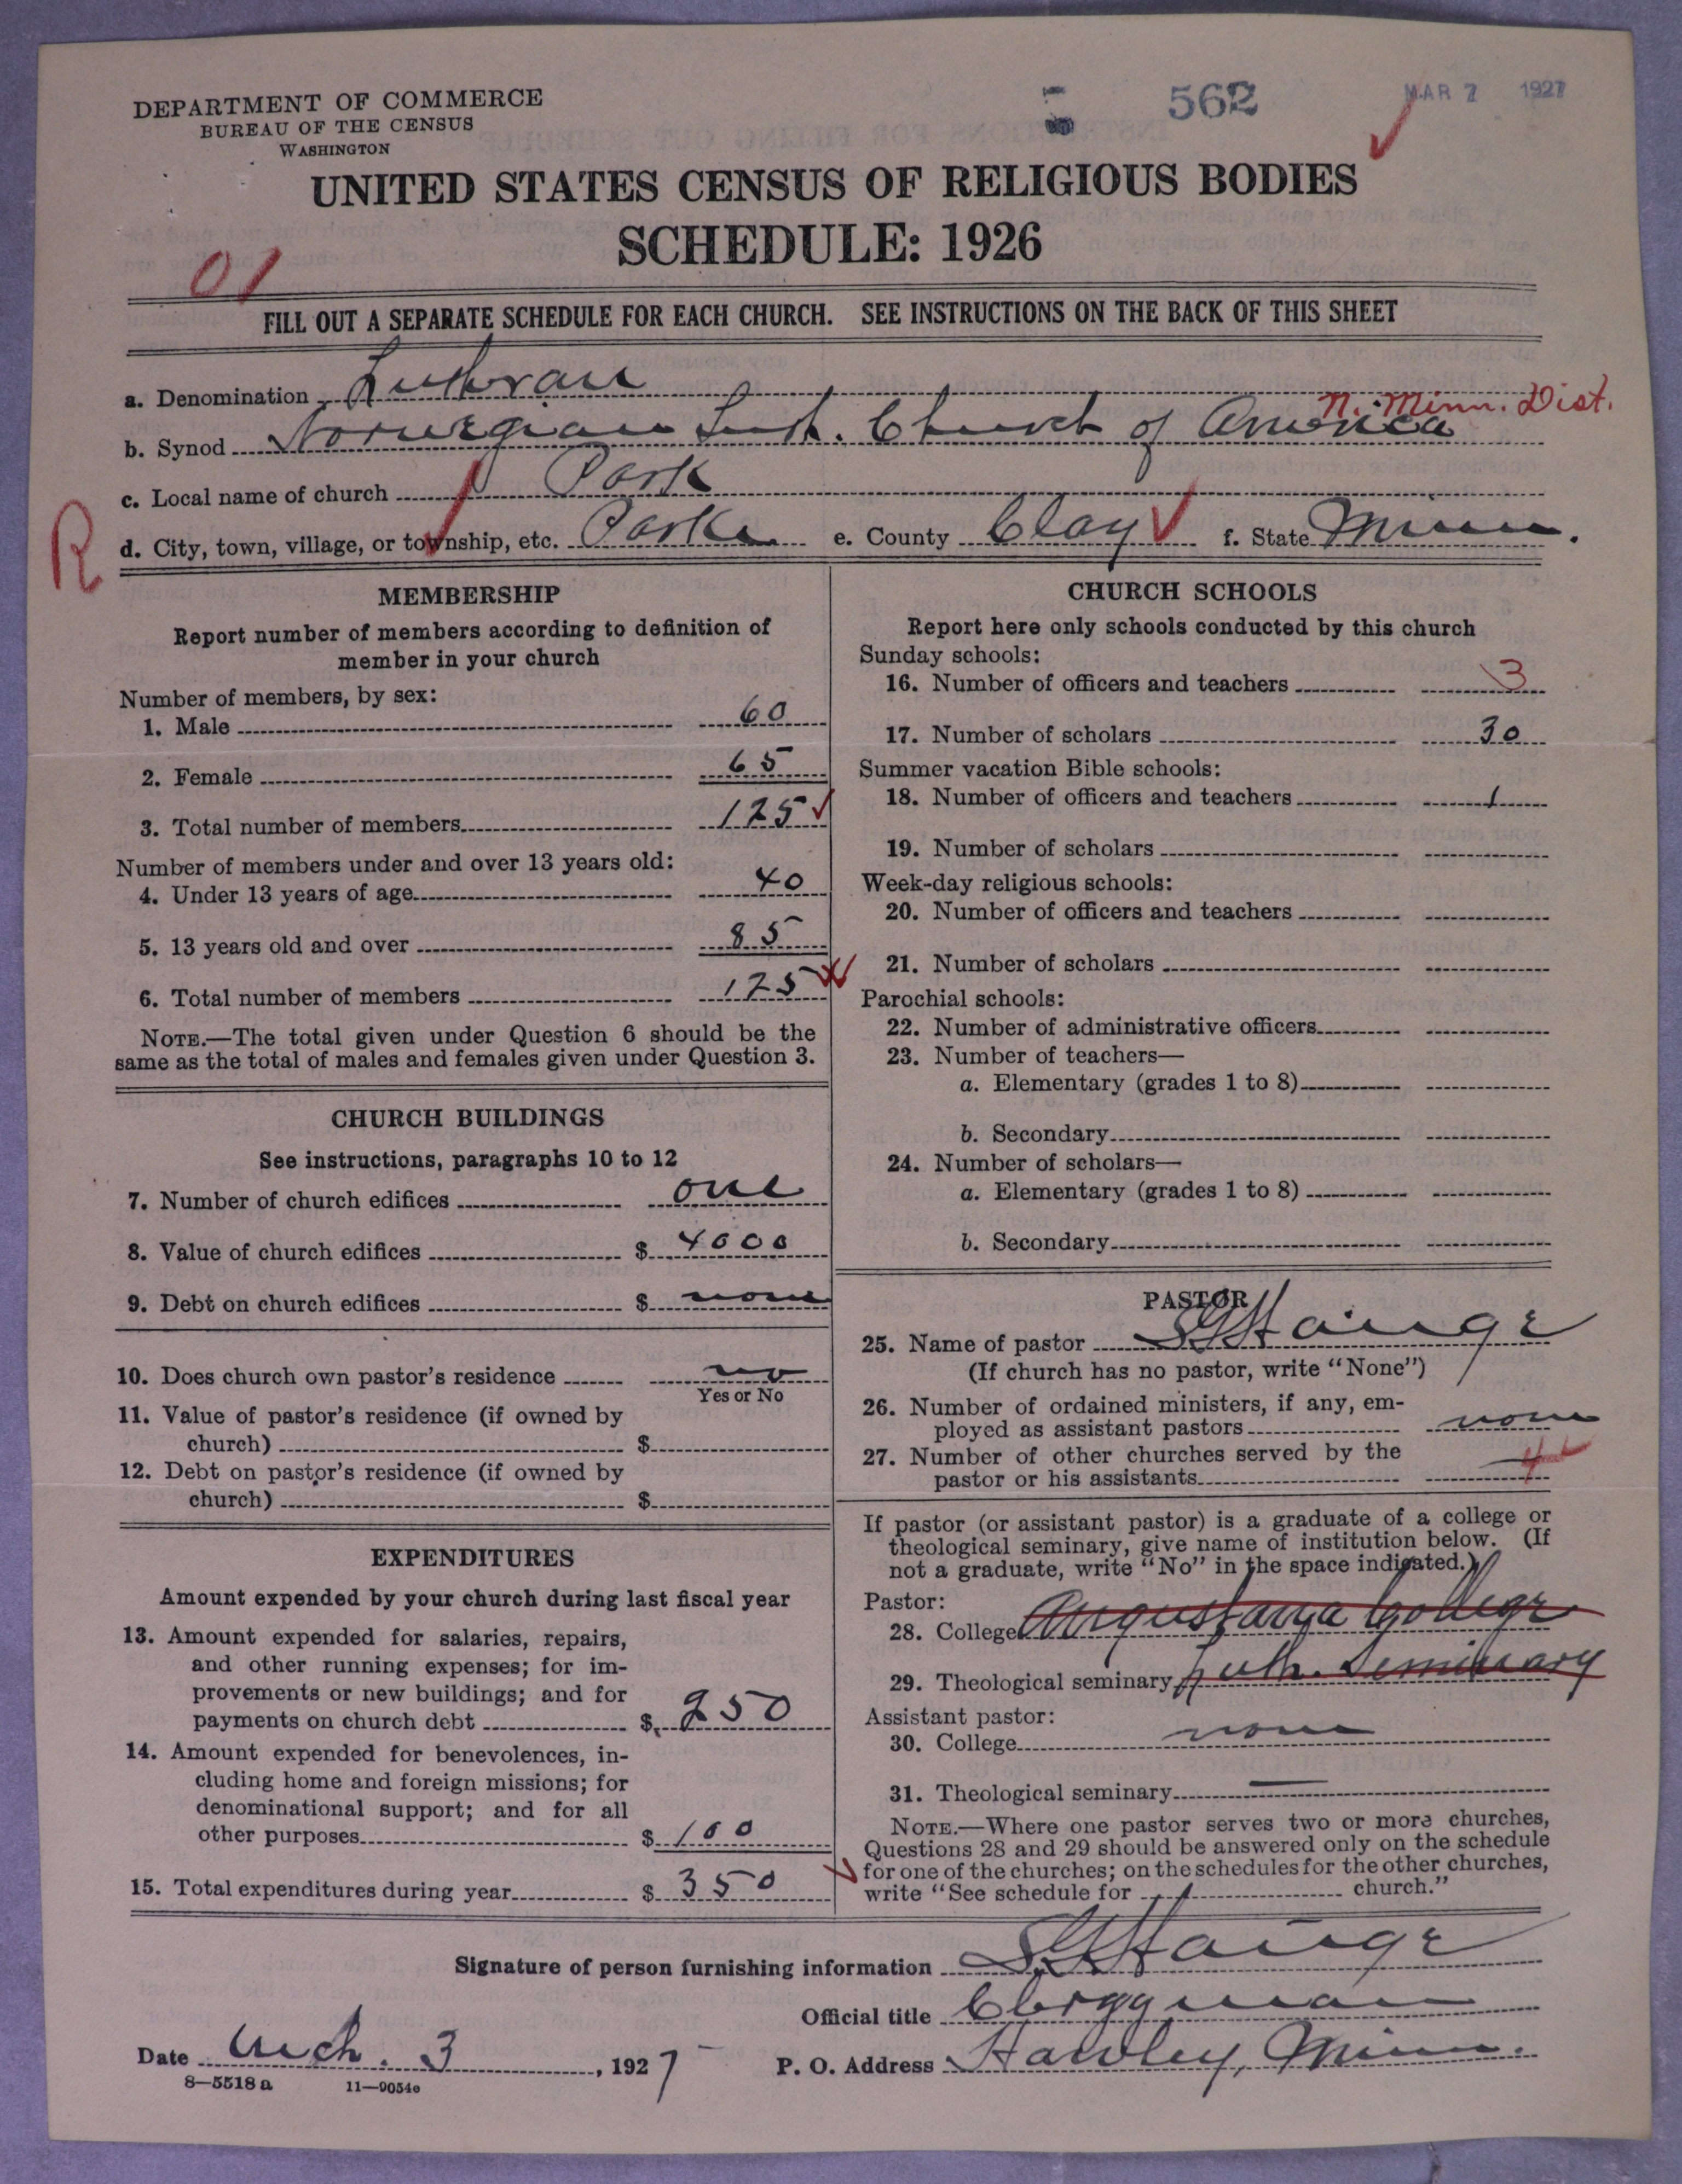 DEPARTMENT OF COMMERCE
BUREAU OF THE CENSUS
WASHINGTON
562
MAR 7 1927
UNITED STATES CENSUS OF RELIGIOUS BODIES
SCHEDULE: 1926
01
FILL OUT A SEPARATE SCHEDULE FOR EACH CHURCH. SEE INSTRUCTIONS ON THE BACK OF THIS SHEET
a. Denomination Lutheran
N. Minn. Dist.
b. Synod Norwegian Luth. Church of America
c. Local name of church Park
R
d. City, town, village, or township, etc. Parke e. County Clay f. State Minn.
MEMBERSHIP
Report number of members according to definition of
member in your church
Number of members, by sex:
1. Male 60
2. Female 65
3. Total number of members 125
Number of members under and over 13 years old:
4. Under 13 years of age 40
5. 13 years old and over 85
6. Total number of members 125
NOTE.—The total given under Question 6 should be the
same as the total of males and females given under Question 3.
CHURCH BUILDINGS
See instructions, paragraphs 10 to 12
7. Number of church edifices one
8. Value of church edifices $ 4000
9. Debt on church edifices $ none
10. Does church own pastor's residence no
Yes or No
11. Value of pastor's residence (if owned by
church) $
12. Debt on pastor's residence (if owned by
church) $
EXPENDITURES
Amount expended by your church during last fiscal year
13. Amount expended for salaries, repairs,
and other running expenses; for im-
provements or new buildings; and for
payments on church debt $ 250
14. Amount expended for benevolences, in-
cluding home and foreign missions; for
denominational support; and for all
other purposes $ 100
15. Total expenditures during year $ 350
CHURCH SCHOOLS
Report here only schools conducted by this church
Sunday schools:
16. Number of officers and teachers 3
17. Number of scholars 30
Summer vacation Bible schools:
18. Number of officers and teachers 1
19. Number of scholars
Week-day religious schools:
20. Number of officers and teachers
21. Number of scholars
Parochial schools:
22. Number of administrative officers
23. Number of teachers—
a. Elementary (grades 1 to 8)
b. Secondary
24. Number of scholars—
a. Elementary (grades 1 to 8)
b. Secondary
PASTOR
25. Name of pastor S G Hauge
(If church has no pastor, write "None")
26. Number of ordained ministers, if any, em-
ployed as assistant pastors none
27. Number of other churches served by the
pastor or his assistants 4
If pastor (or assistant pastor) is a graduate of a college or
theological seminary, give name of institution below. (If
not a graduate, write "No" in the space indicated.)
Pastor:
28. College Augustana College
29. Theological seminary Luth. Seminary
Assistant pastor:
30. College none
31. Theological seminary —
NOTE.—Where one pastor serves two or more churches,
Questions 28 and 29 should be answered only on the schedule
for one of the churches; on the schedules for the other churches,
write "See schedule for church."
Signature of person furnishing information S G Hauge
Official title Clergyman
Date Mch. 3, 1927 P. O. Address Hawley, Minn.
8—5518 a 11—9054e